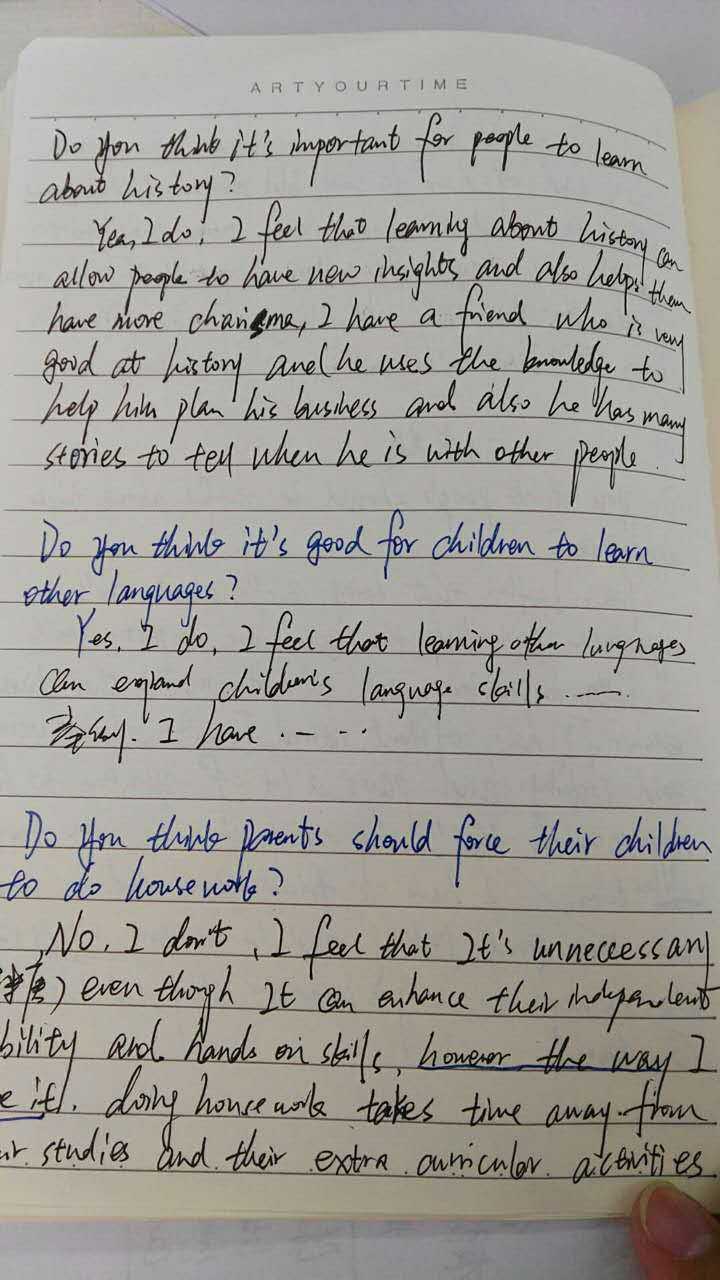 ARTYOURTIME
Do you think it's important for people to learn
about history?
Yes, I do, I feel that learning about history can
allow people to have new insights and also helps them
have more charisma, I have a friend who is very
good at history and he uses the knowledge to
help him plan his business and also he has many
stories to tell when he is with other people.
Do you think it's good for children to learn
other languages?
Yes, I do, I feel that learning other languages
can expland children's language skills ......
I have ......
Do you think parents should force their children
to do housework?
No, I don't, I feel that It's unneccessary
) even though It can enhance their independent
bility and hands on skills, however the way I
e it, doing housework takes time away from
ir studies and their extra curricular activities